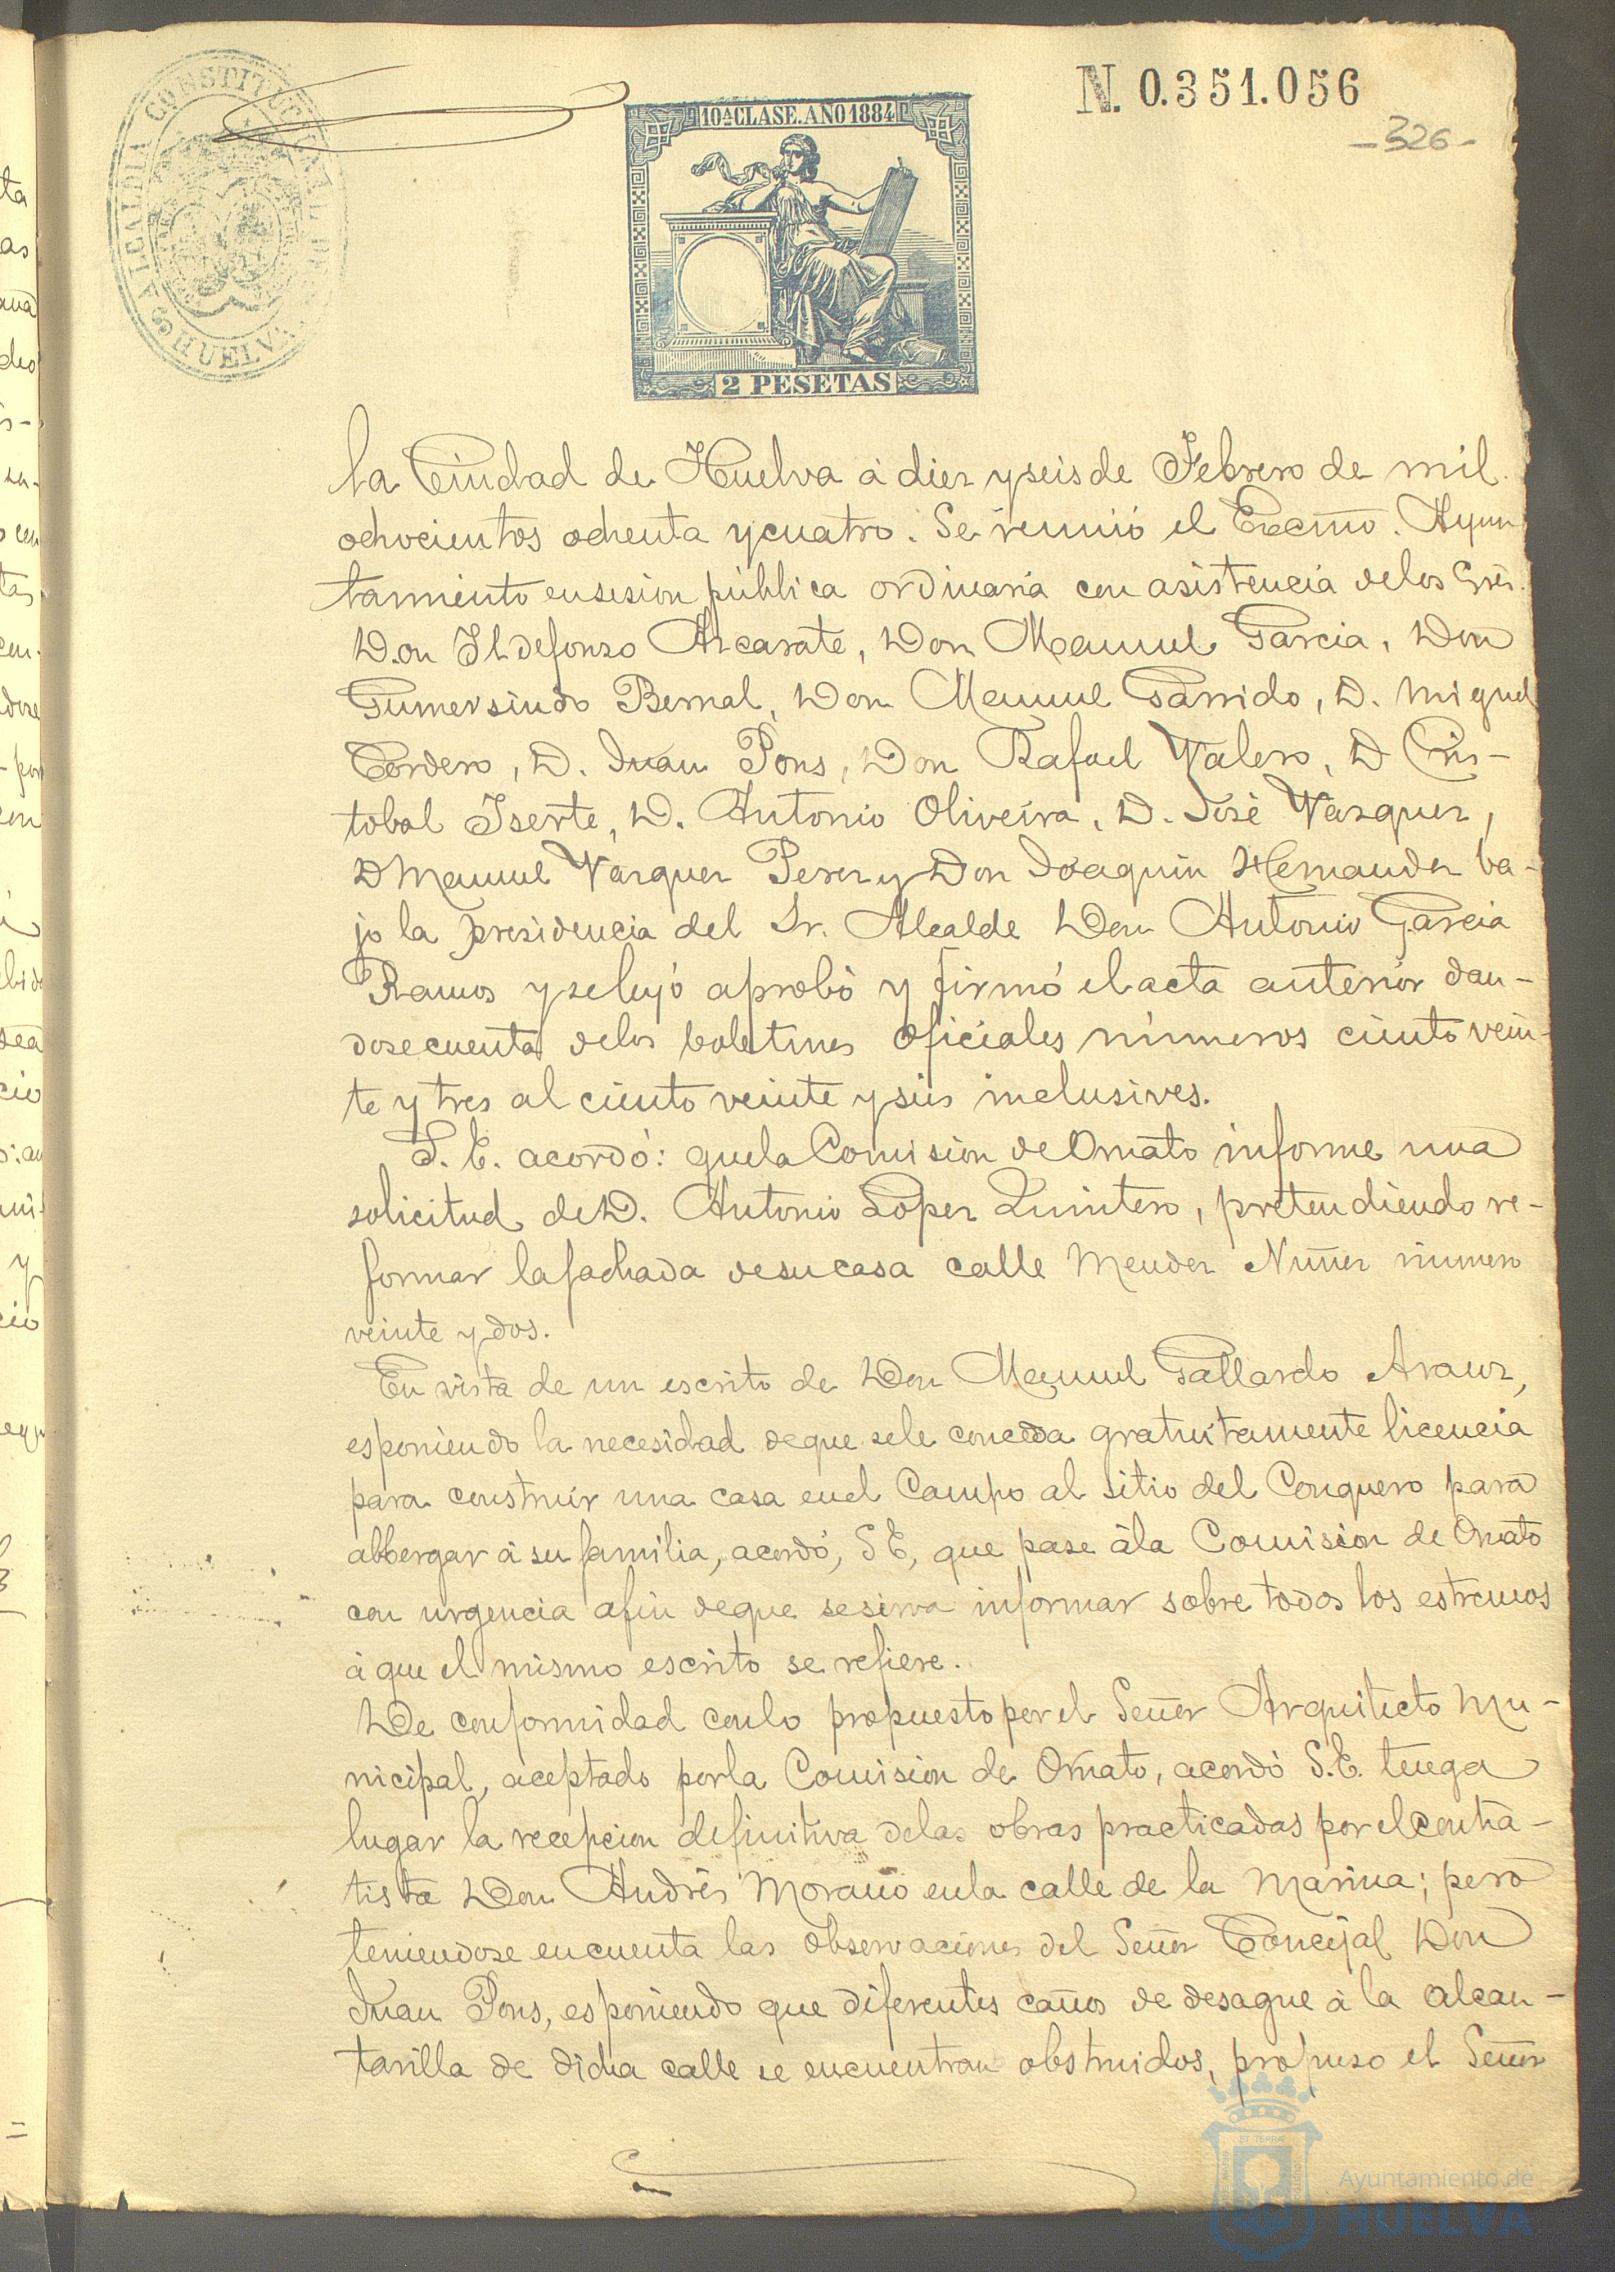 ALCALDIA CONSTITUCIONAL DE
HUELVA
10ª CLASE. AÑO 1884
2 PESETAS
N. 0.351.056
-326-
la Ciudad de Huelva á diez y seis de Febrero de mil
ochocientos ochenta y cuatro. Se reunió el Excmo. Ayun
tamiento en sesion pública ordinaria con asistencia de los Sres.
Don Ildefonzo Alcarate, Don Manuel Garcia, Don
Gumersindo Bernal, Don Manuel Garrido, D. Miguel
Cordero, D. Juan Pons, Don Rafael Valero, D Cris-
tobal Iserte, D. Antonio Oliveira, D. José Vazquez,
D Manuel Vazquez Perez y Don Joaquin Hernandez ba-
jo la presidencia del Sr. Alcalde Don Antonio Garcia
Ramos y se leyó aprobó y firmó el acta anterior dan-
dose cuenta de los boletines oficiales números ciento vein-
te y tres al ciento veinte y seis inclusives.
S. E. acordó: que la Comision de Ornato informe una
solicitud de D. Antonio Lopez Quintero, pretendiendo re-
formar la fachada de su casa calle Mendez Nuñez número
veinte y dos.
En vista de un escrito de Don Manuel Gallardo Arauz,
esponiendo la necesidad de que se le conceda gratuitamente licencia
para construir una casa en el Campo al sitio del Conquero para
albergar á su familia, acordó, S E, que pase á la Comision de Ornato
con urgencia afin de que se sirva informar sobre todos los estremos
á que el mismo escrito se refiere.
De conformidad con lo propuesto por el Señor Arquitecto Mu-
nicipal, aceptado por la Comision de Ornato, acordó S.E. tenga
lugar la recepcion definitiva de las obras practicadas por el contra-
tista Don Andrés Moraño en la calle de la Marina; pero
teniendose en cuenta las observaciones del Señor Concejal Don
Juan Pons, esponiendo que diferentes caños de desague á la alcan-
tarilla de dicha calle se encuentran obstruidos, propuso el Señor
Ayuntamiento de
HUELVA